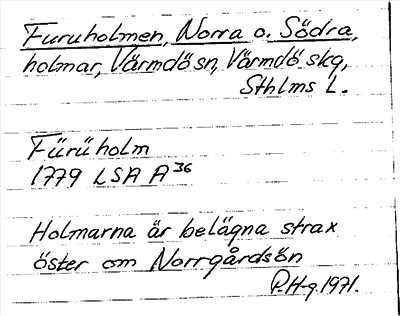 Furuholmen, Norra o. Södra,
holmar, Värmdö sn, Värmdö skg,
Sthlms L.
Fürüholm
1779 LSA A 36
Holmarna är belägna strax
öster om Norrgårdsön
P.H-g. 1971.